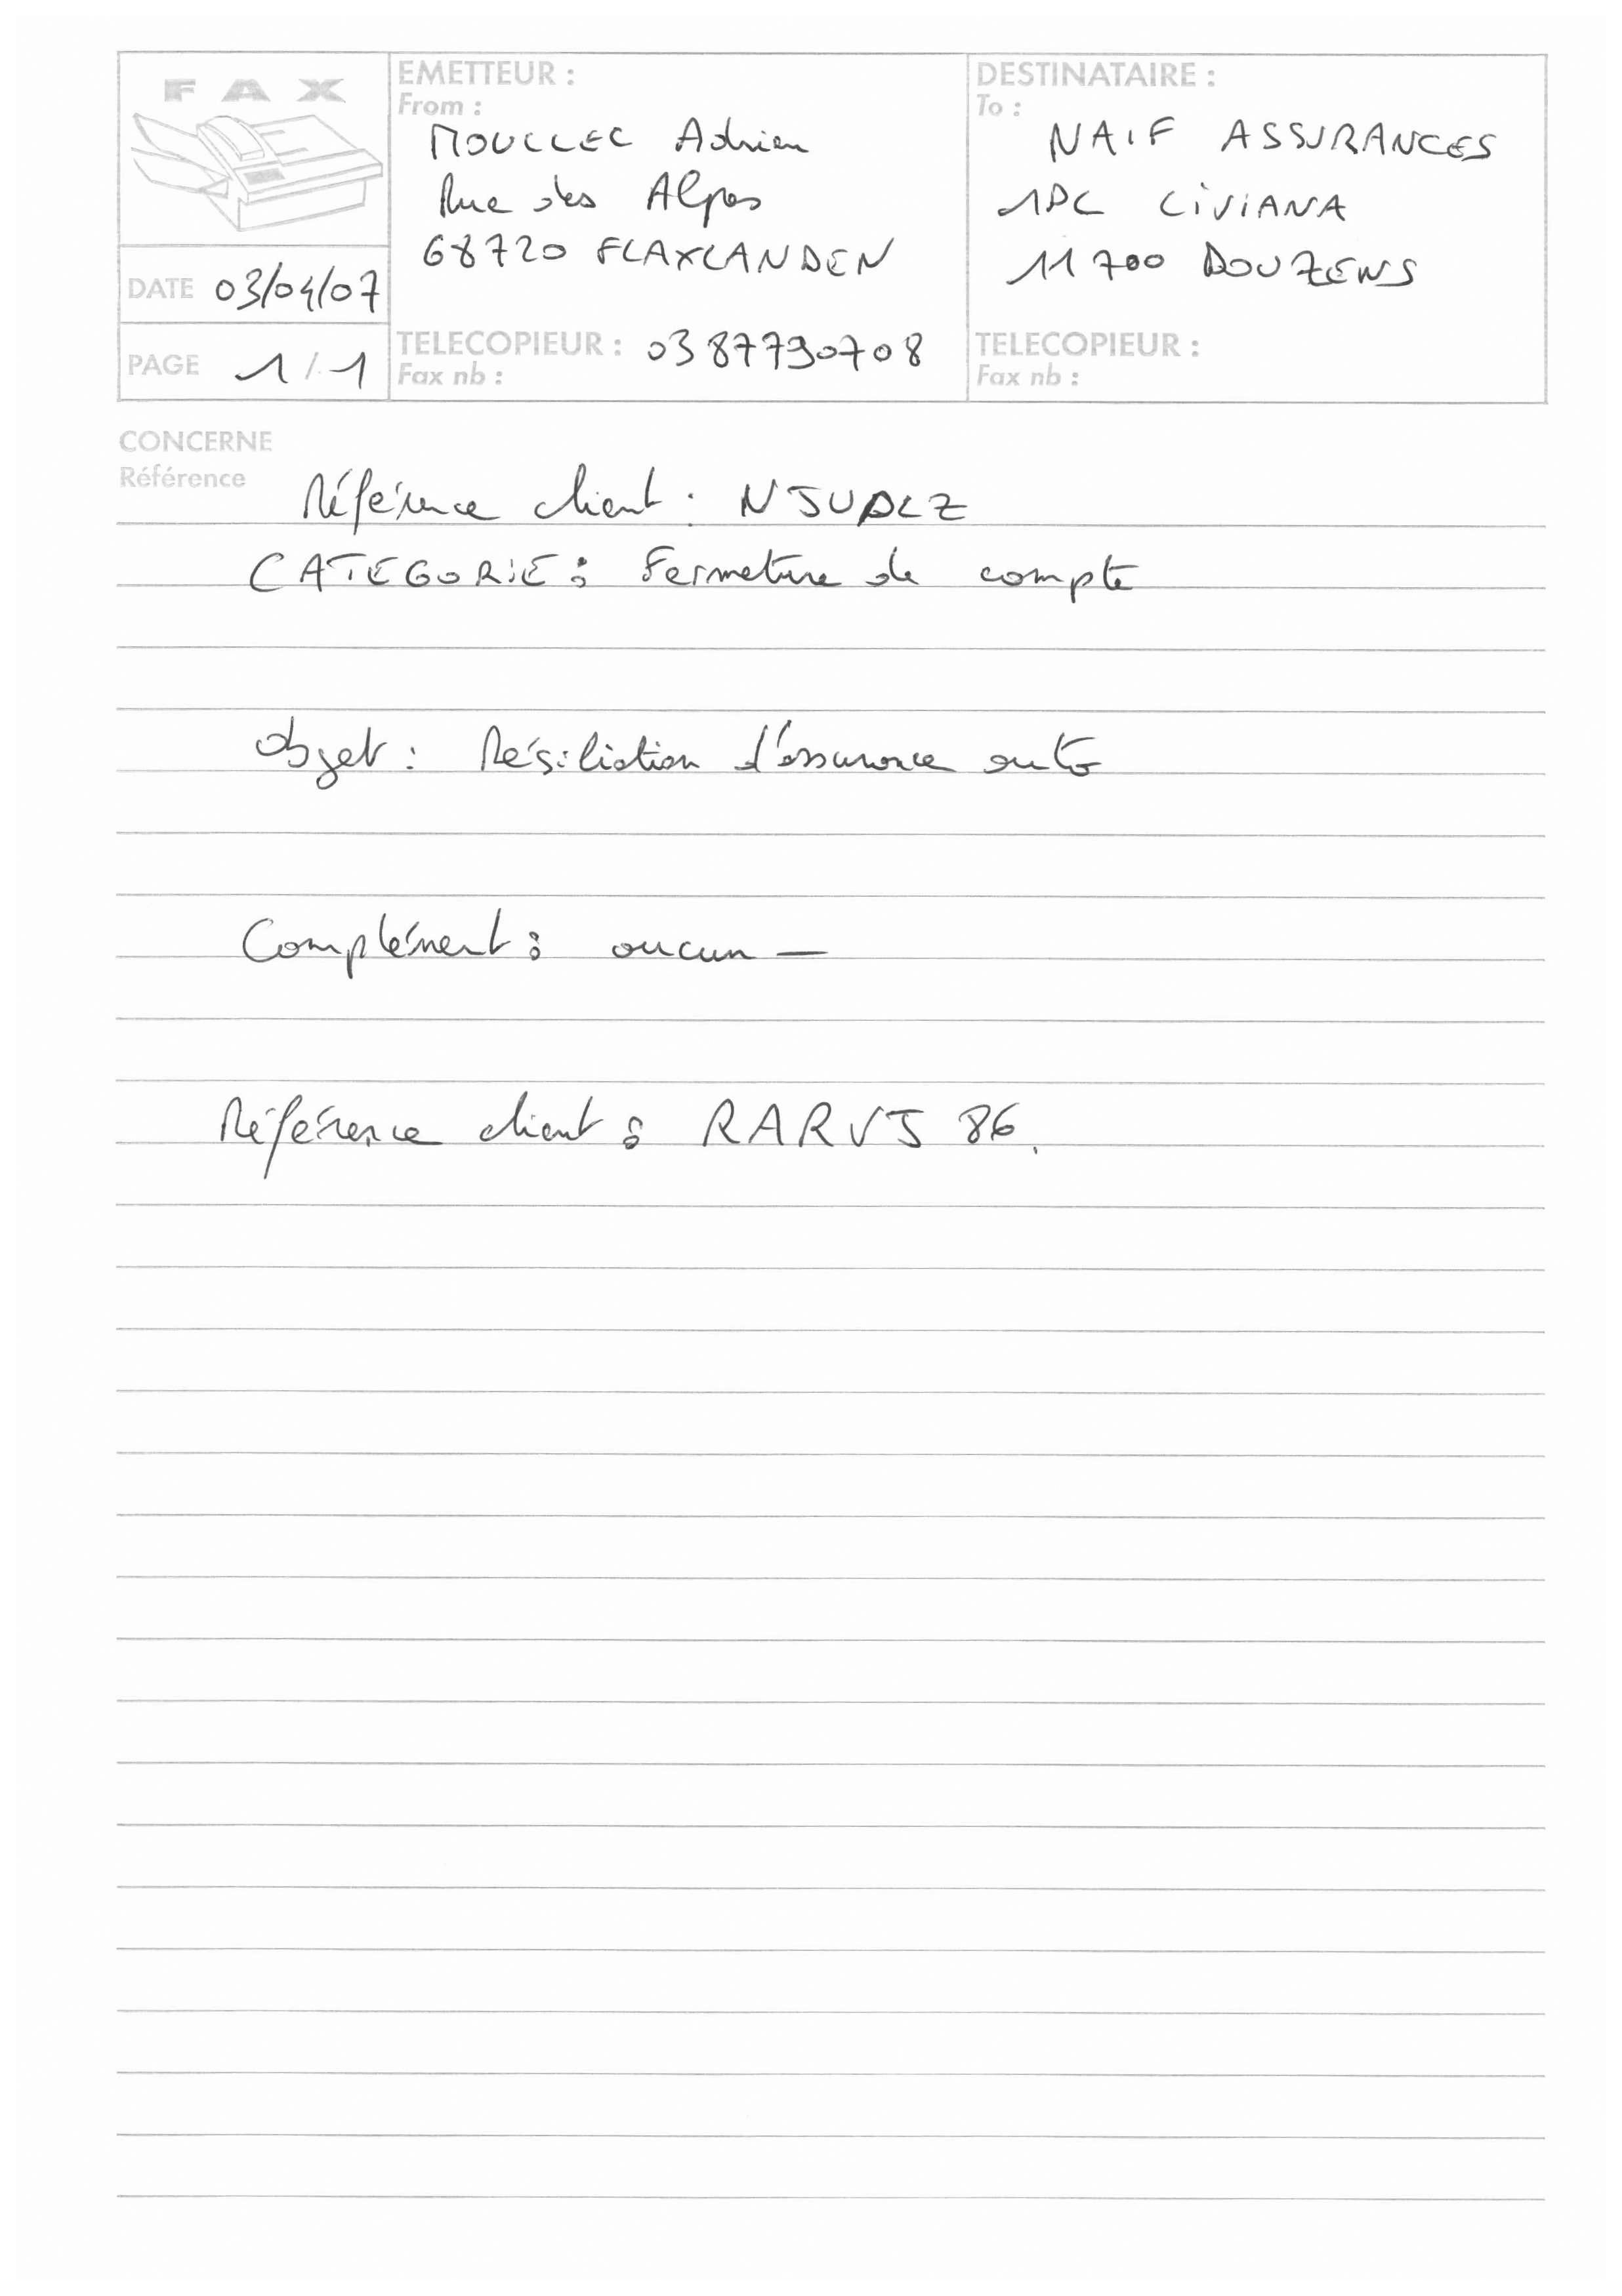 FAX
EMETTEUR :
From :
MOULLEC Adrien
Rue des Alpes
68720 FLAXLANDEN
TELECOPIEUR : 0387790708
Fax nb :
DESTINATAIRE :
To :
NAIF ASSURANCES
1PL CIVIANA
11700 DOUZENS
TELECOPIEUR :
Fax nb :
DATE 03/04/07
PAGE 1/1
CONCERNE
Référence
Référence client : NJUDLZ
CATEGORIE : Fermeture de compte
Objet : Résiliation d'assurance auto
Complément : aucun —
Référence client : RARVJ 86.